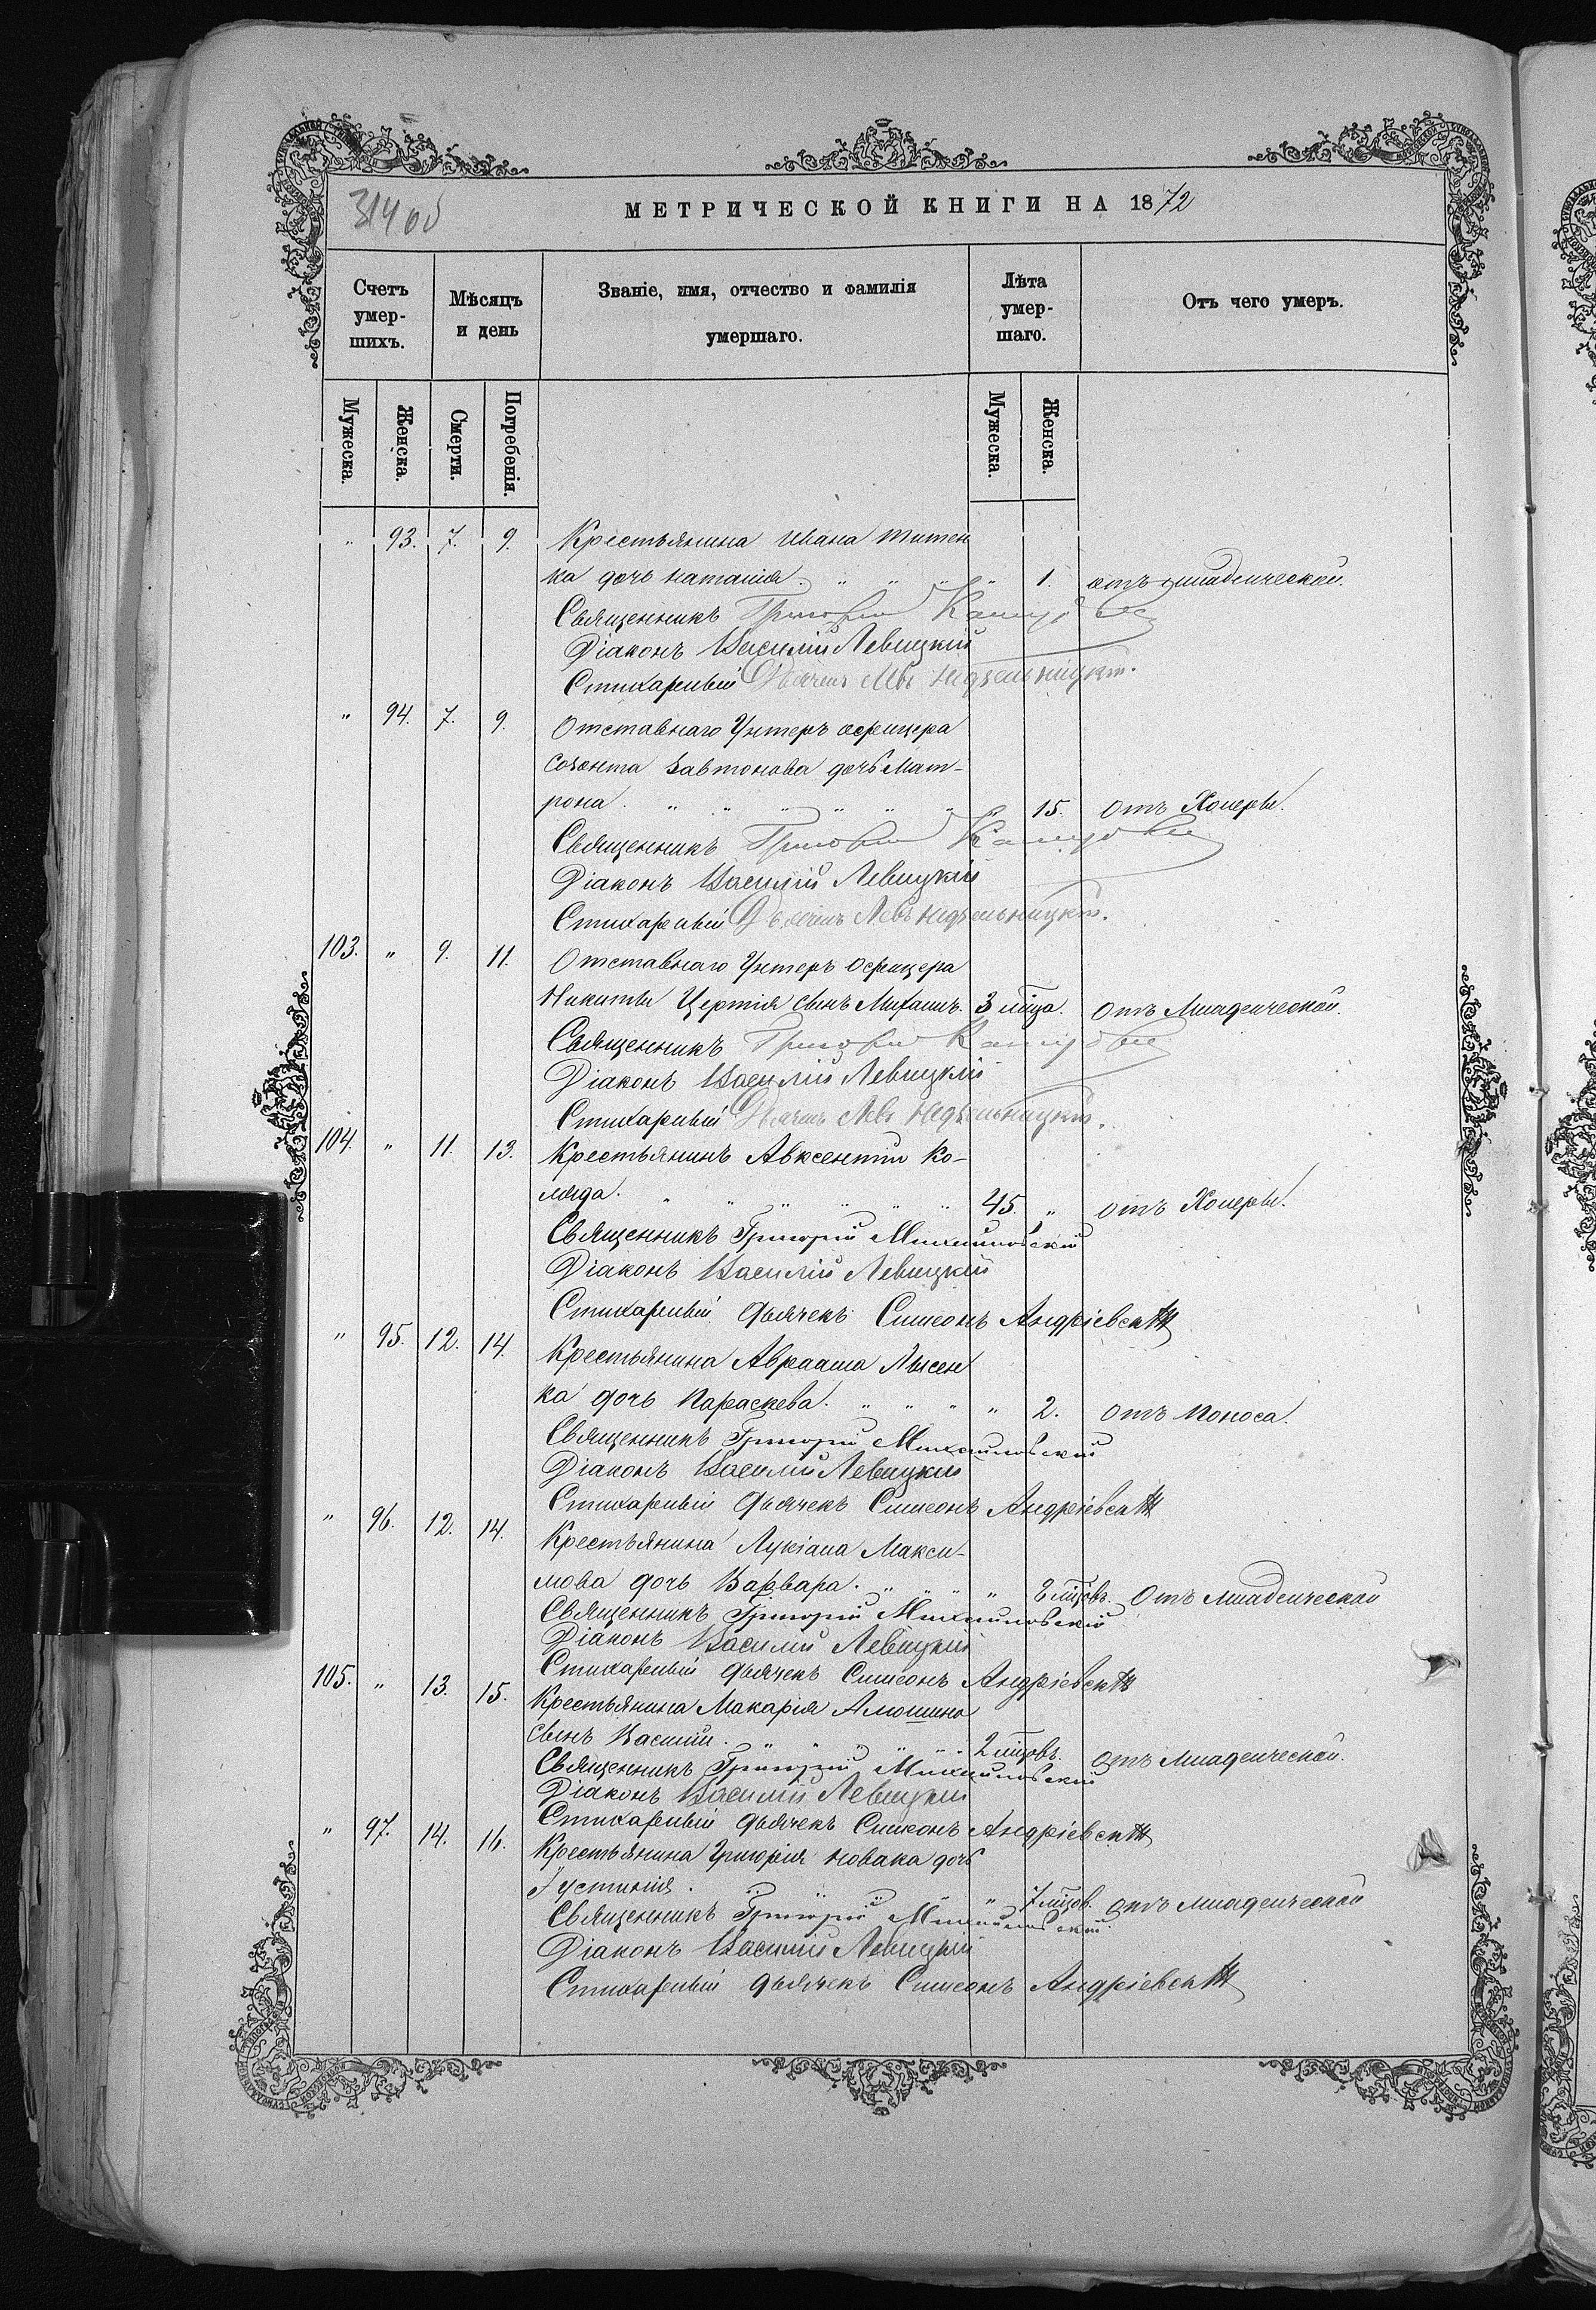 314 об
МЕТРИЧЕСКОЙ КНИГИ НА 1872
Счетъ умер-шихъ. Мѣсяцъ и день Званіе, имя, отчество и фамилія умершаго. Лѣта умер-шаго. Отъ чего умеръ.
Мужеска. Женска. Смерти. Погребенія. Мужеска. Женска.
" 93. 7. 9. Крестьянина Ивана Титен
ка дочь Наталія. " " " " 1. отъ младенческой.
Священникъ Григорій
Діаконъ Василій Левицкій
Стихарный Дьячекъ Левъ Недѣльницкій.
" 94. 7. 9. Отставнаго Унтеръ офицера
Созонта Завтонова дочь Мат-
рона. " " " " " " " 15. отъ Холеры.
Священникъ Григорій
Діаконъ Василій Левицкій
Стихарный Дьячекъ Левъ Недѣльницкій.
103. " 9. 11. Отставнаго Унтеръ Офицера
Никиты сынъ Михаилъ. 3 мѣца. Отъ Младенческой.
Священникъ Григорій
Діаконъ Василій Левицкій
Стихарный Дьячекъ Левъ Недѣльницкій.
104. " 11. 13. Крестьянинъ Авксентій Ко-
ляда. " " " " " " 45. " отъ Холеры.
Священникъ Григорій Михайловскій
Діаконъ Василій Левицкій
Стихарный дьячекъ Симеонъ Андріевскій
" 95. 12. 14. Крестьянина Авраама Лысен
ка дочь Параскева. " " " " 2. отъ Поноса.
Священникъ Григорій Михайловскій
Діаконъ Василій Левицкій
Стихарный дьячекъ Симеонъ Андріевскій
" 96. 12. 14. Крестьянина Лукіана Макси-
мова дочь Варвара. " " " " 8 мцовъ. Отъ младенческой
Священникъ Григорій Михайловскій
Діаконъ Василій Левицкій
Стихарный дьячекъ Симеонъ Андріевскій
105. " 13. 15. Крестьянина Макарія Алошина
сынъ Василій. " " " " " " 2 мцовъ. отъ Младенческой.
Священникъ Григорій Михайловскій
Діаконъ Василій Левицкій
Стихарный дьячекъ Симеонъ Андріевскій
" 97. 14. 16. Крестьянина Григорія Новака дочь
Іустинія. " " " " " 7 мцов. отъ младенческой
Священникъ Григорій Михайловскій.
Діаконъ Василій Левицкій
Стихарный дьячекъ Симеонъ Андріевскій